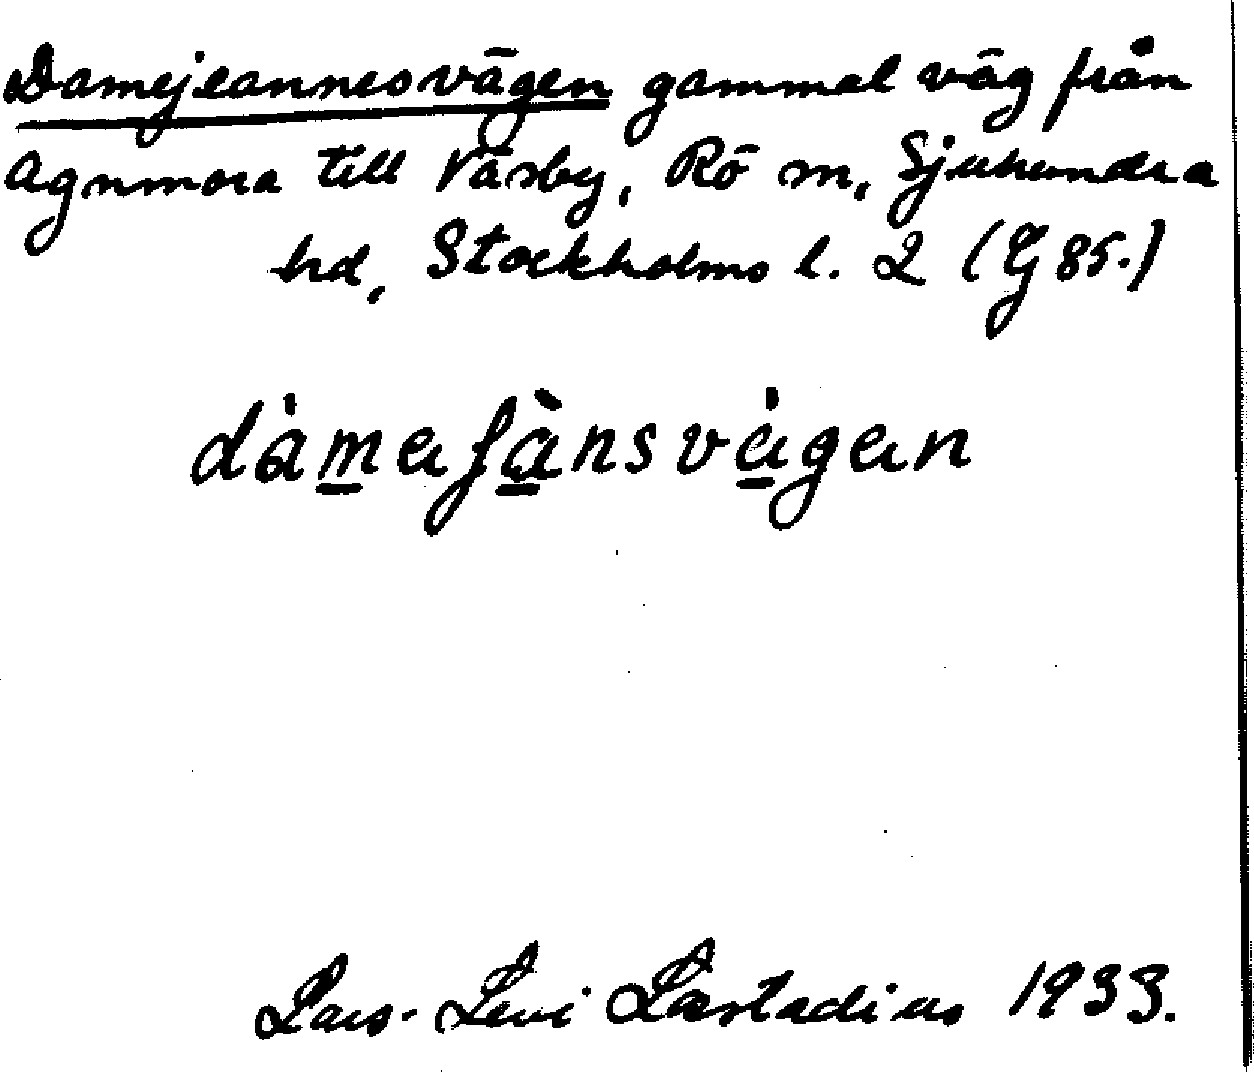 Damejeannesvägen gammal väg från
Agnmora till Väsby, Rö sn, Sjuhundra
hd, Stockholms l. 2 (G 85.)
dàmafànsvägan
Lars-Levi Læstadius 1933.